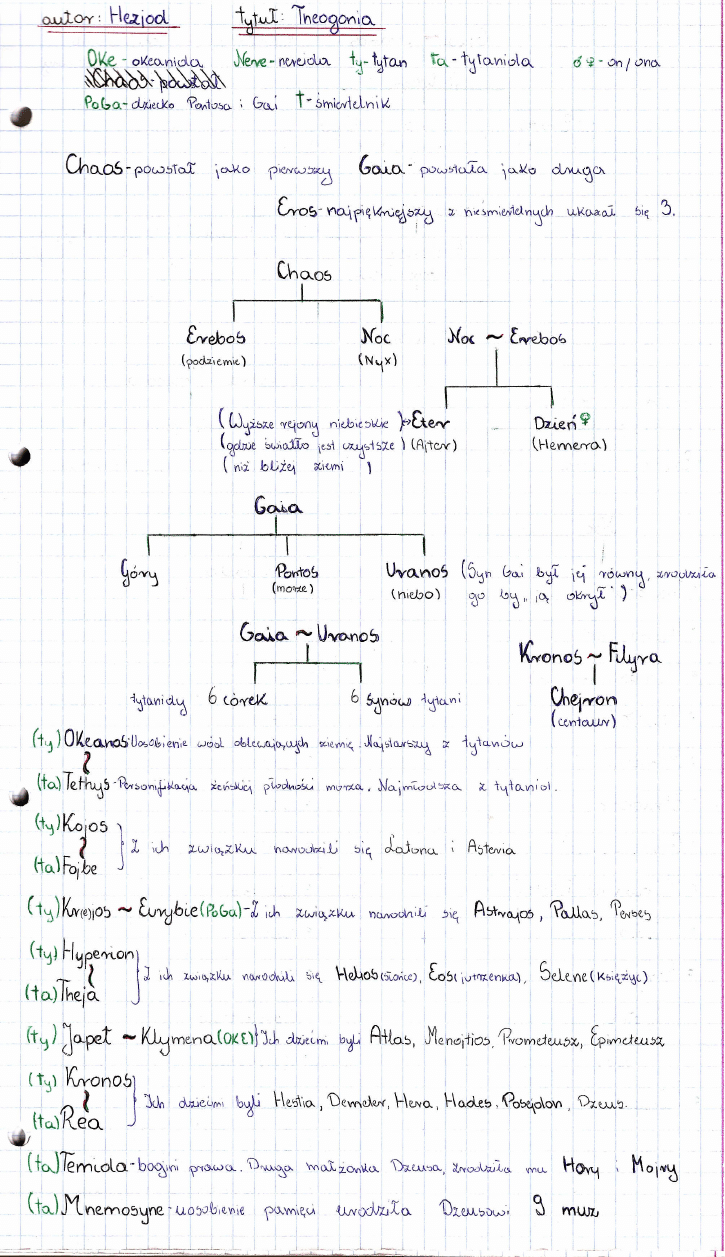 autor: Hezjod tytuł: Theogonia
OKe - okeanida Nere - nereida ty - tytan ta - tytanida ♂♀ - on/ona
Chaos - powstał
PoGa - dziecko Pontosa i Gai † - śmiertelnik
Chaos - powstał jako pierwszy Gaia - powstała jako druga
Eros - najpiękniejszy z nieśmiertelnych ukazał się 3.
Chaos
Erebos Noc Noc ~ Erebos
(podziemie) (Nyx)
(Wyższe rejony niebieskie) Eter Dzień ♀
(gdzie światło jest czystsze) (Ajter) (Hemera)
(niż bliżej ziemi)
Gaia
Góry Pontos Uranos (Syn Gai był jej równy, zrodziła
(morze) (niebo) go by „ją okrył")
Gaia ~ Uranos
Kronos ~ Filyra
tytanidy 6 córek 6 synów tytani Chejron
(centaur)
(ty) Okeanos Uosobienie wód oblewających ziemię. Najstarszy z tytanów
(ta) Tethys - Personifikacja żeńskiej płodności morza. Najmłodsza z tytanid.
(ty) Kojos
} Z ich związku narodzili się Latona i Asteria
(ta) Fojbe
(ty) Kr(e)jos ~ Eurybie (PoGa) - Z ich związku narodzili się Astrajos, Pallas, Perses
(ty) Hyperion
} Z ich związku narodzili się Helios (słońce), Eos (jutrzenka), Selene (Księżyc)
(ta) Theja
(ty) Japet ~ Klymena (OKE) } Ich dziećmi byli Atlas, Menojtios, Prometeusz, Epimeteusz
(ty) Kronos
} Ich dziećmi byli Hestia, Demeter, Hera, Hades, Posejdon, Dzeus.
(ta) Rea
(ta) Temida - bogini prawa. Druga małżonka Dzeusa, zrodziła mu Hory i Mojry
(ta) Mnemosyne - uosobienie pamięci urodziła Dzeusowi 9 muz